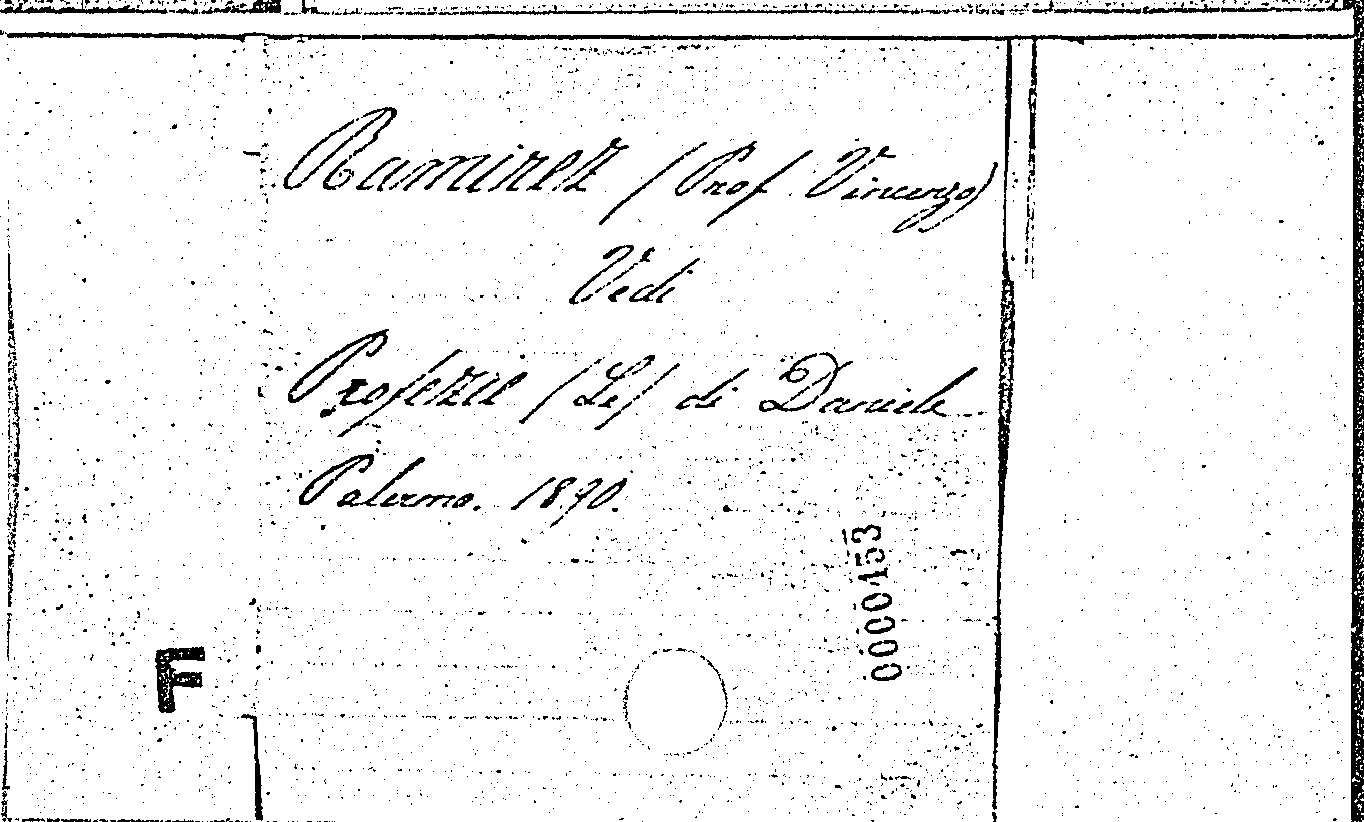 Ramirez (Prof. Vincenzo)
Vedi
Profezie (Le) di Daniele
Palermo. 1890.
0000153
F